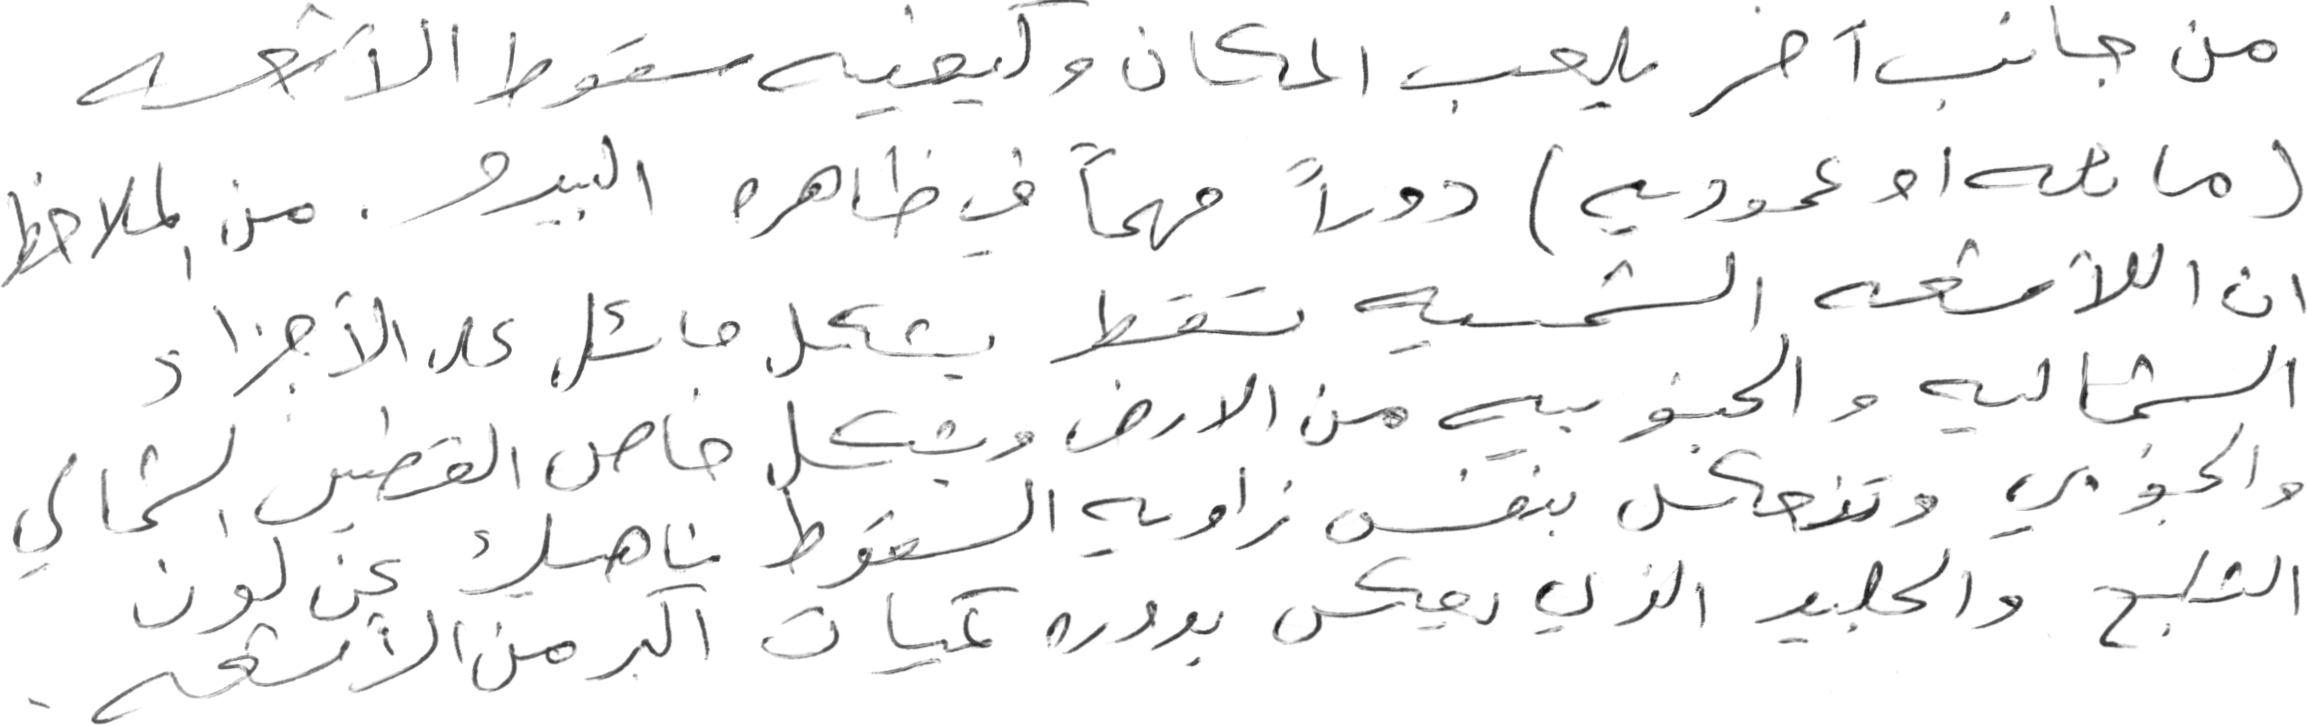 من جانب آخر يلعب المكان وكيفيه سقوط الأشعه
(مائله او عموديه) دوراً مهماً في ظاهره البرد . من الملاحظ
ان اللأشعه الشمسيه تسقط بشكل مائل على الأجزاء
الشماليه والجنوبيه من الارض وبشكل خاص القطبين الشمالي
والجنوبي وتنعكس بنفس زاويه السقوط ناهيك عن لون
الثلج والجليد الذي يعكس بدوره كميات اكبر من الأشعه .